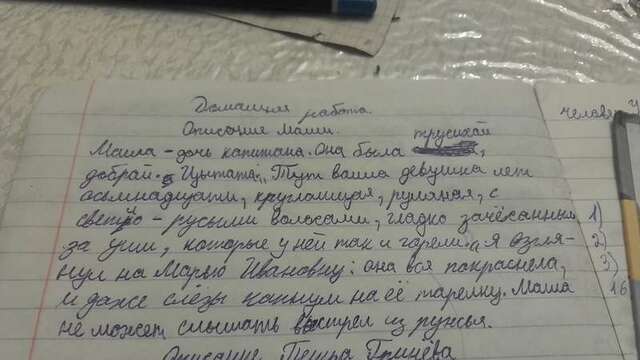 Домашняя работа.
Описание маши.
Маша - дочь капитана. Она была трусихой,
доброй. Цычтата "Тут вошла девушка лет
осьмнадцати, круглолицая, румяная, с
светло - русыми волосами, гладко зачёсанными
за уши, которые у ней так и горели." "я взгля-
нул на Марью Ивановну: она вся покраснела,
и даже слёзы капнули на её тарелку. Маша
не может слышать выстрел из ружья.
Описание Петра Гринёва
челове
1)
2)
3)
16